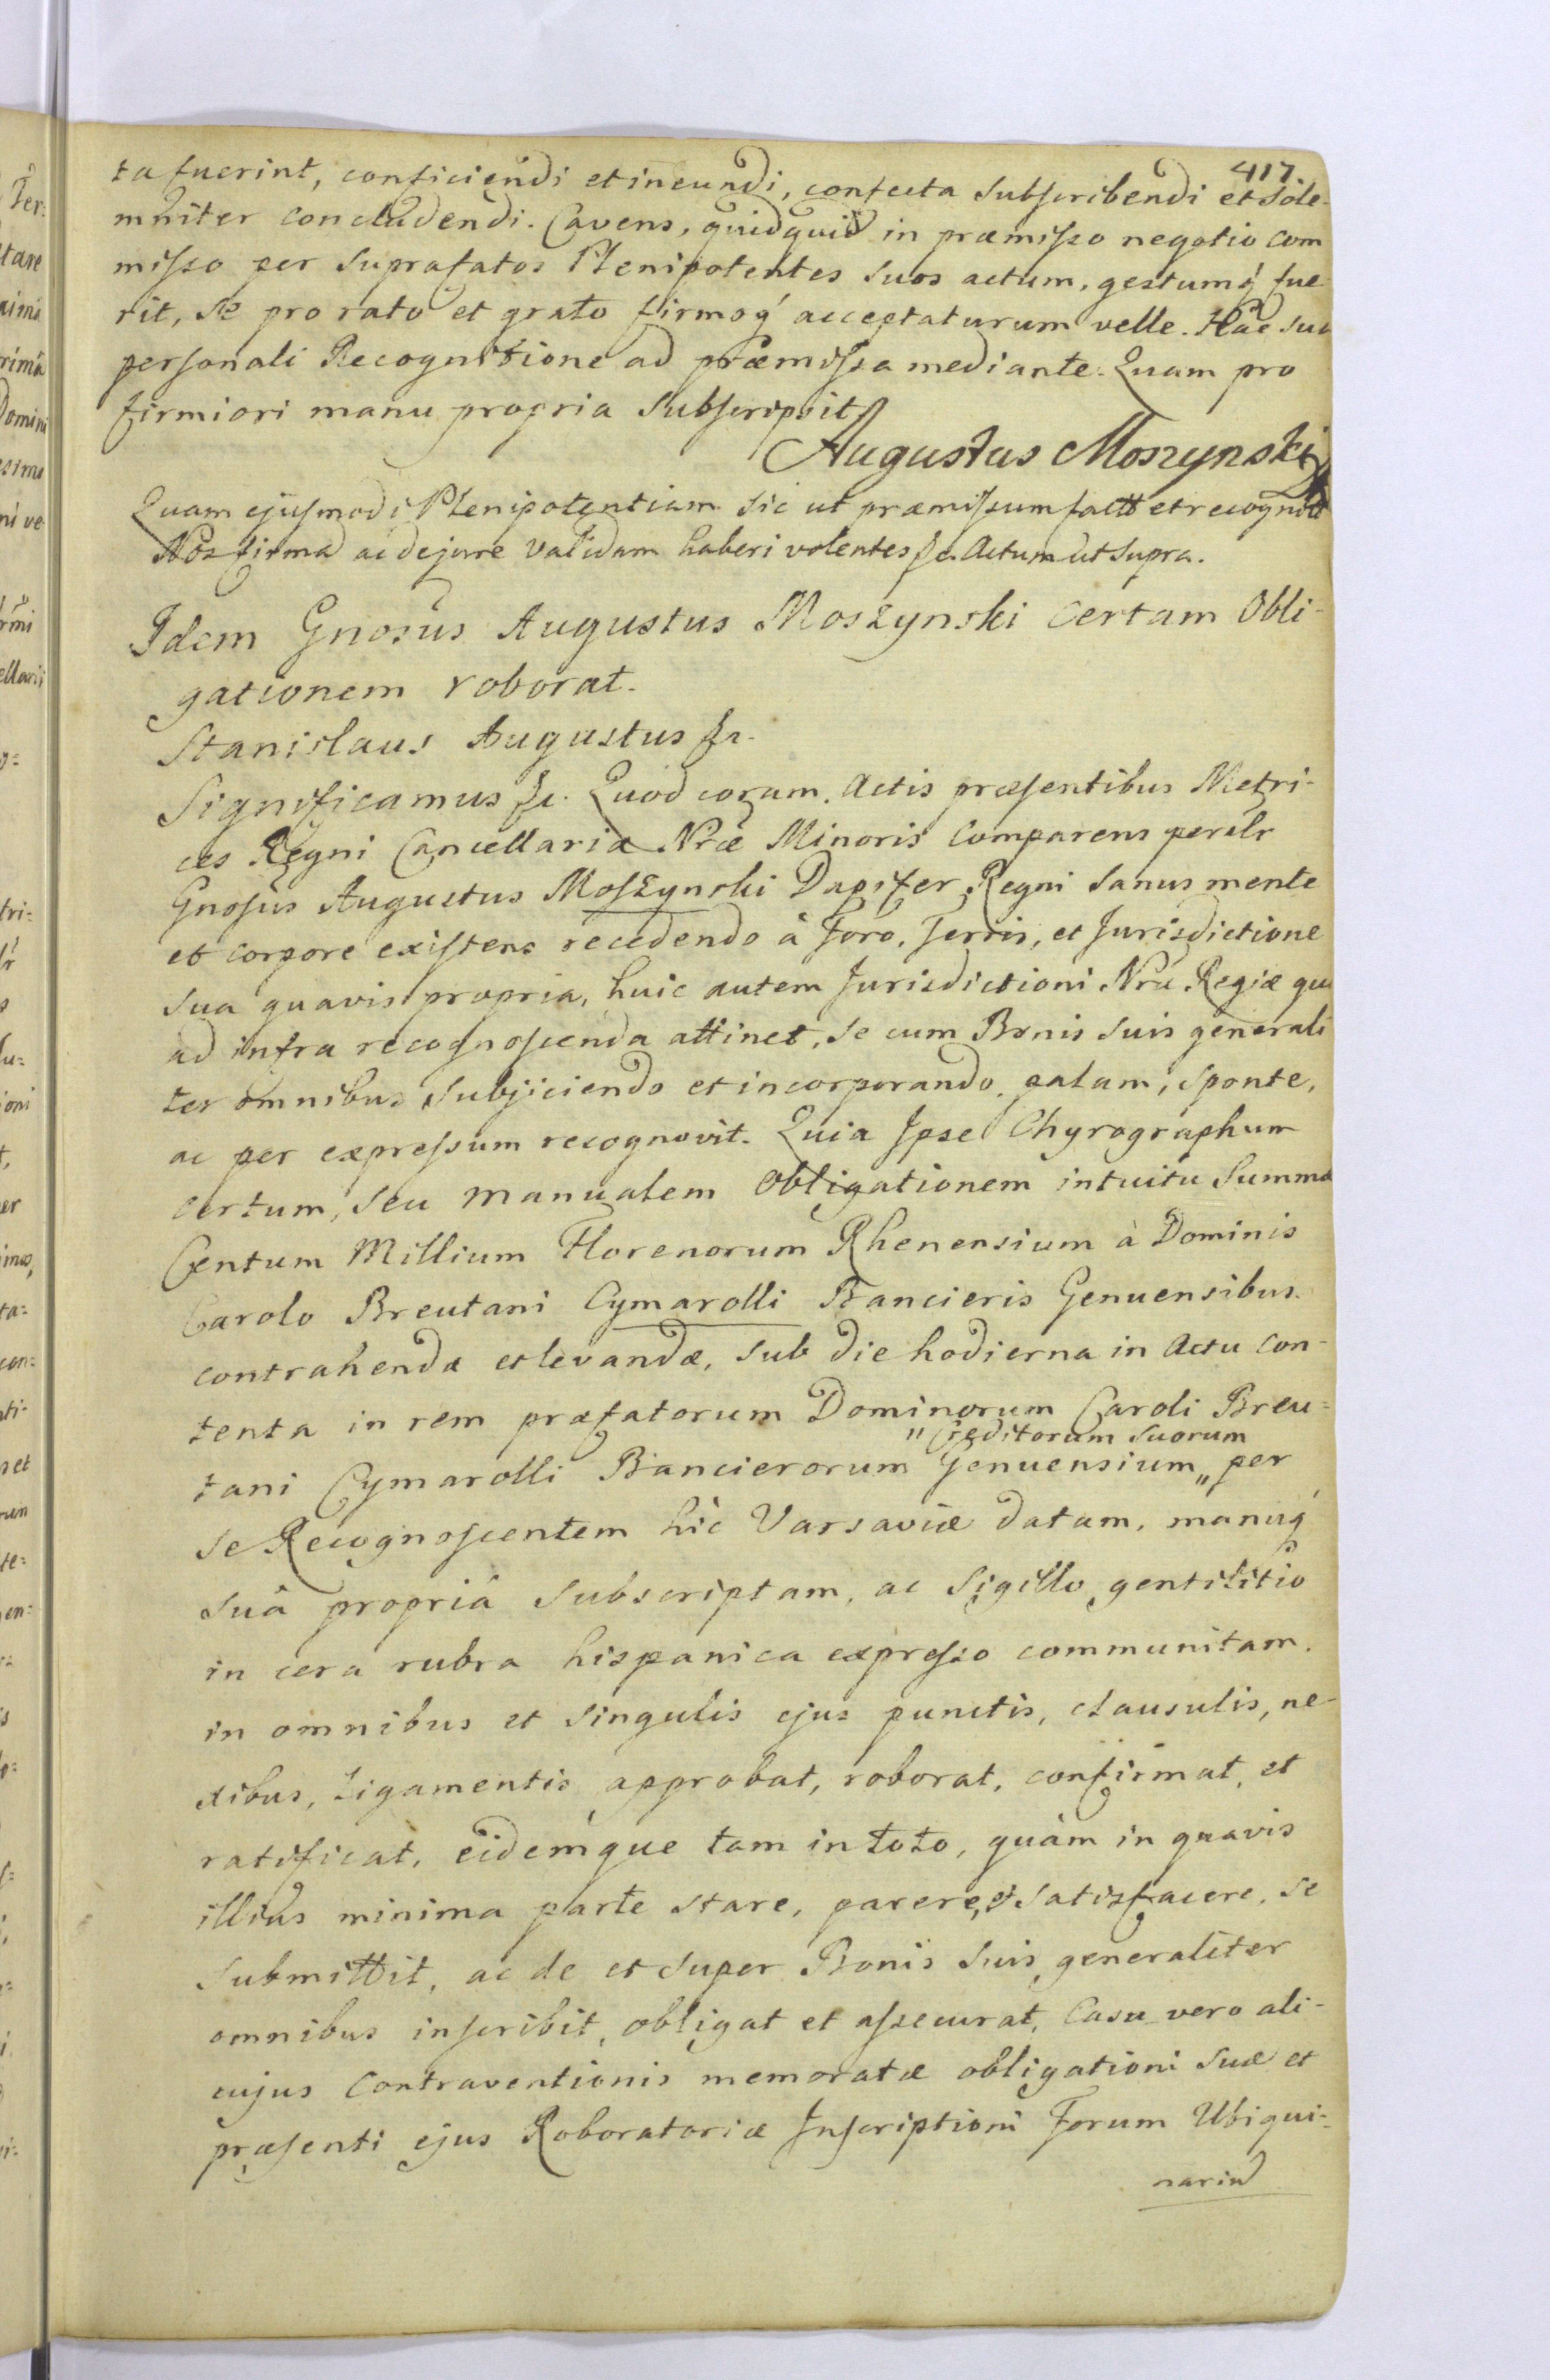 417.
ta fuerint, conficiendi et ineundi, confecta subscribendi et sole-
mniter concludendi. Cavens, quidquid in præmisso negotio com
misso per suprafatos Plenipotentes suos actum, gestumq́ fue
rit, se pro rato et grato firmoq́ acceptaturum velle. Hac sua
personali Recognitione ad præmissa mediante. Quam pro
firmiori manu propria subscripsit
Augustus Moszynski
Quam ejusmodi Plenipotentiam sic ut præmissum factt et recognitt
Nos firmā ac de jure validam haberi volentes &c. Actum ut supra.
Idem Gnosus Augustus Moszynski certam Obli-
gationem roborat.
Stanislaus Augustus &c.
Significamus &c. Quod coram Actis præsentibus Metri-
ces Regni Cancellariæ Nræ Minoris comparens perslr
Gnosus Augustus Moszynski Dapifer Regni sanus mente
et corpore existens recedendo à Foro, Terris, et Jurisdictione
sua quavis propria, huic autem Jurisdictioni Nræ Regiæ qu
ad infra recognoscenda attinet, se cum Bonis suis generali
ter omnibus subjiciendo et incorporando, palam, sponte,
ac per expressum recognovit. Quia Ipse Chyrographum
certum, seu manualem Obligationem intuitu Summæ
Centum Millium Florenorum Rhenensium à Dominis
Carolo Breutani Cymarolli Bancieris Genuensibus
contrahendæ et levandæ, sub die hodierna in Actu con-
tenta in rem præfatorum Dominorum Caroli Breu-
" Creditorum suorum
tani Cymarolli Bancierorum Genuensium " per
se Recognoscentem hic Varsaviæ datam, manuq́
suâ propriâ subscriptam, ac Sigillo gentilitio
in cera rubra hispanica expresso communitam.
in omnibus et singulis ejus punctis, clausulis, ne-
xibus, ligamentis approbat, roborat, confirmat, et
ratificat, eidemque tam in toto, quàm in quavis
illius minima parte stare, parere, et satisfacere, se
submittit, ac de et super Bonis suis generaliter
omnibus inscribit, obligat et assecurat, Casu vero ali-
cujus Contraventionis memoratæ obligationi suæ et
præsenti ejus Roboratoriæ Inscriptioni Forum Ubiqui-
nariu